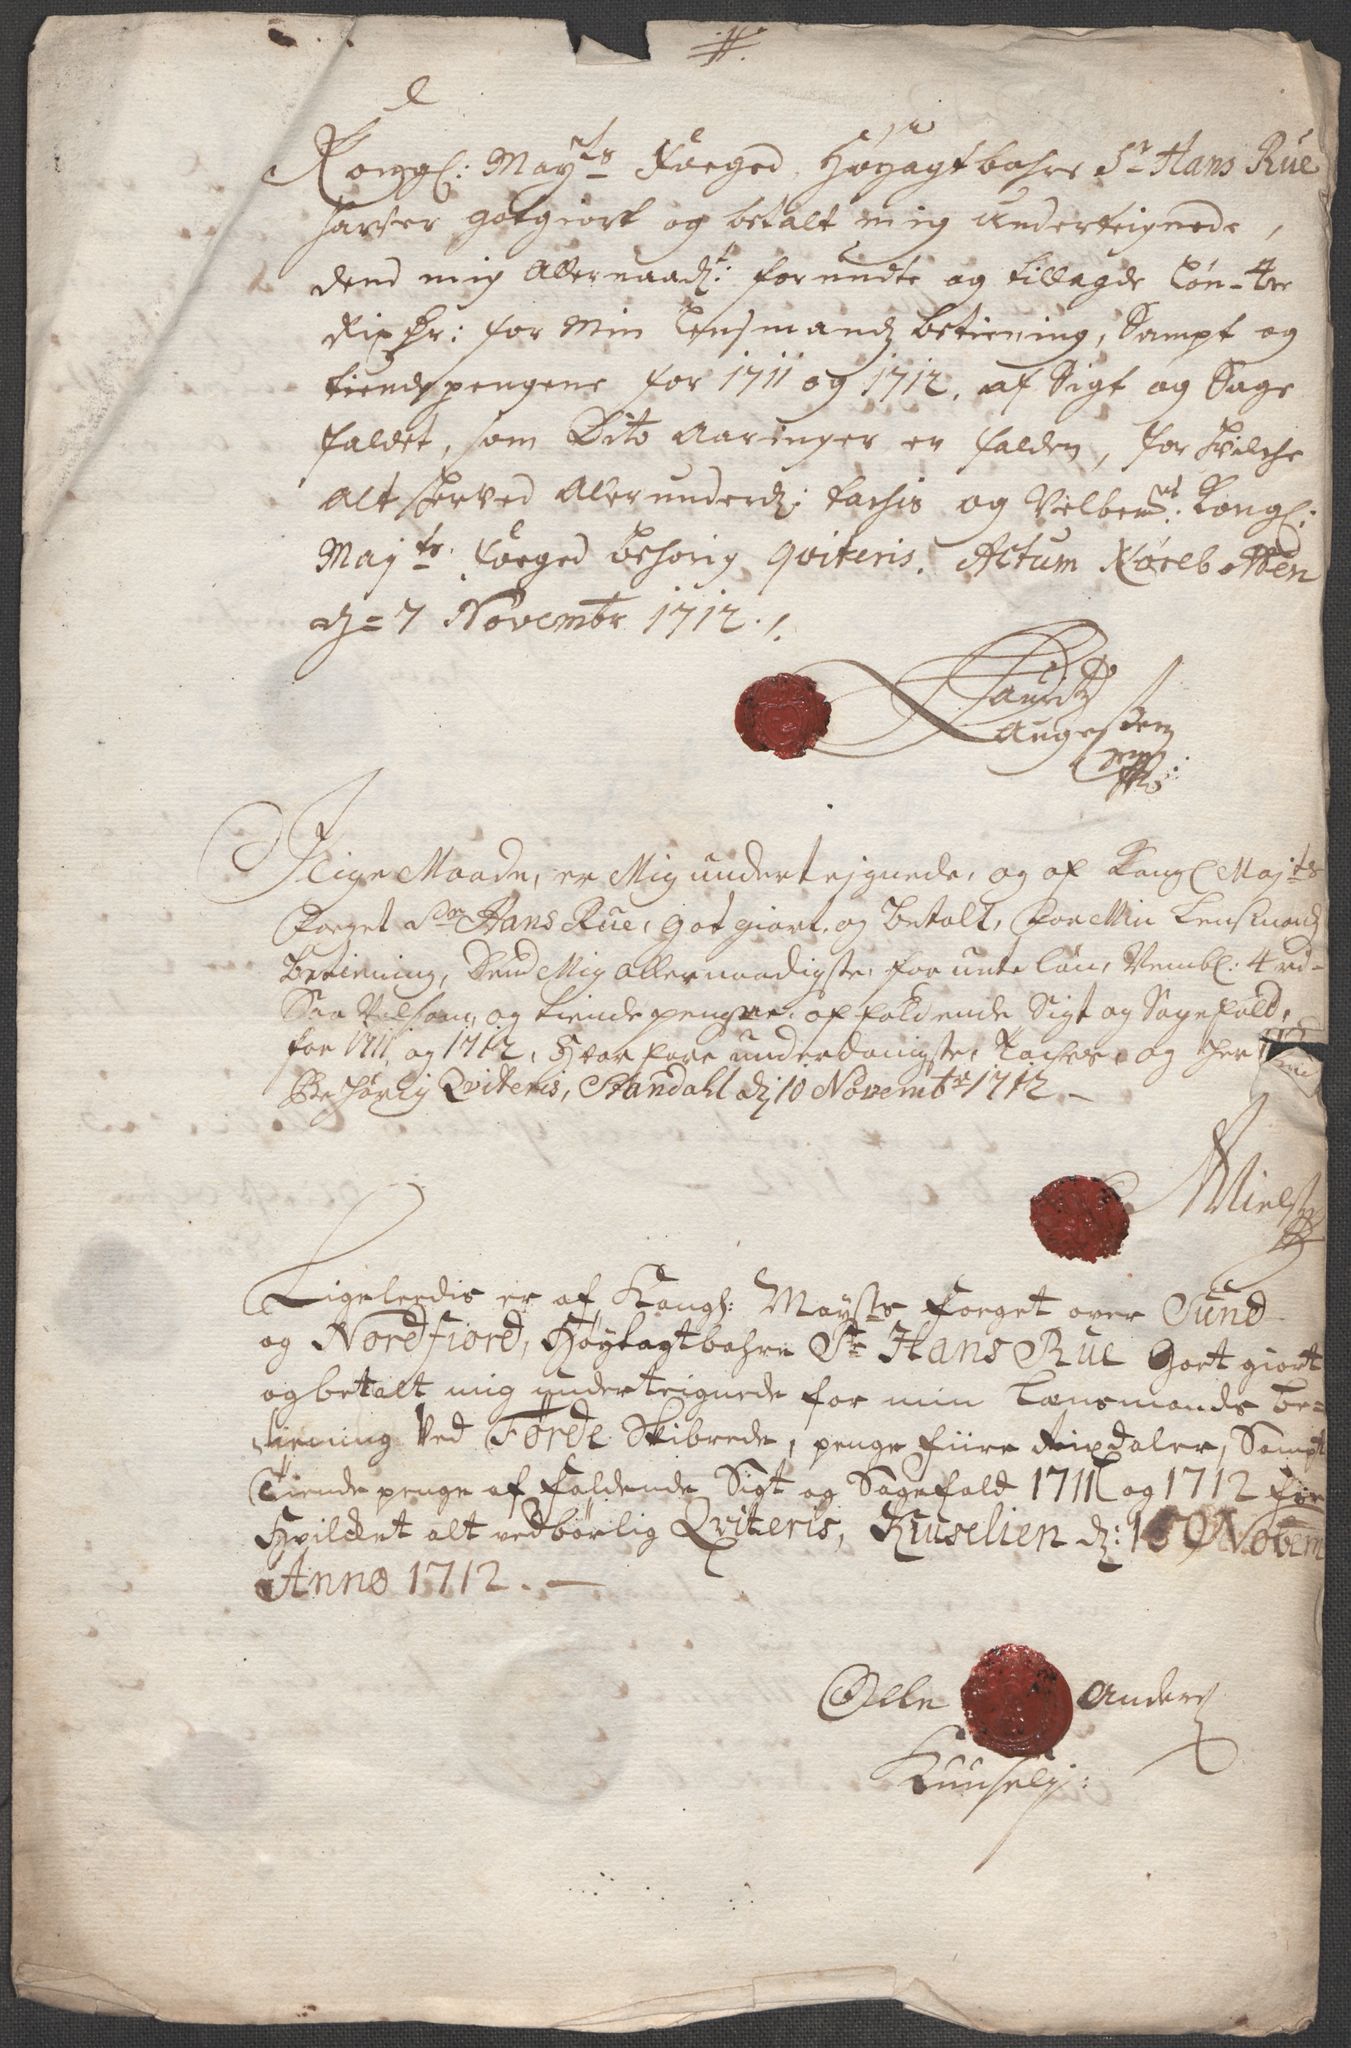 Kongl: Mayts Foeged Høyagtbahre Sr Hans Rue
hafver gotgiort og betalt mig Underteignede,
dend mig Allernaadst: forundte og tillagde Løn - 4re
Rixdr: for Min Lensmandz betiening, Sampt og
tiendepengene for 1711 og 1712, af Sigt og Sage
faldet, som Dito Aaringer er falden, for hvilche
Alt herved Allerunderd: tachis og Velbemt: Kongl:
Mayts: Foeged behørig qviteris. Actum
dz = 7 Novembr 1712 ./.
Lauritz
Augesten
mpp
Jlige Maade, er Mig undertejgnede, og af Kongl Majts
Foeget Sr Hans Rue, got giort, og betalt, for Min Lensmandz
Betiening, Dend Mig allernaadigste, forunte løn, Nembl: 4 rd
Saa Velsom, og tiende pengene, af faldende Sigt og Sagefald,
for 1711 og 1712, Hvorfore underdanigste, Taches, og her
Behørig Qviteris, Standahl dz 10 Novembr 1712 -
Niels
Ligeleedis er af Kongl: Mayts Foeget over Sund
og Nordfiord, Høyagtbahre Sr Hans Rue Goet giort
og betalt mig underteignede for min Lensmands be=
tiening Ved Førde Skibrede, penge fiire Rixdaler, Sampt
Tiende penge af faldende Sigt og Sagefald 1711 og 1712 for
Hvilcket alt vedbørlig Qviteris, Kuuselien dz: Nobem
Anno 1712. -
Olle Anders
Kuuseli: